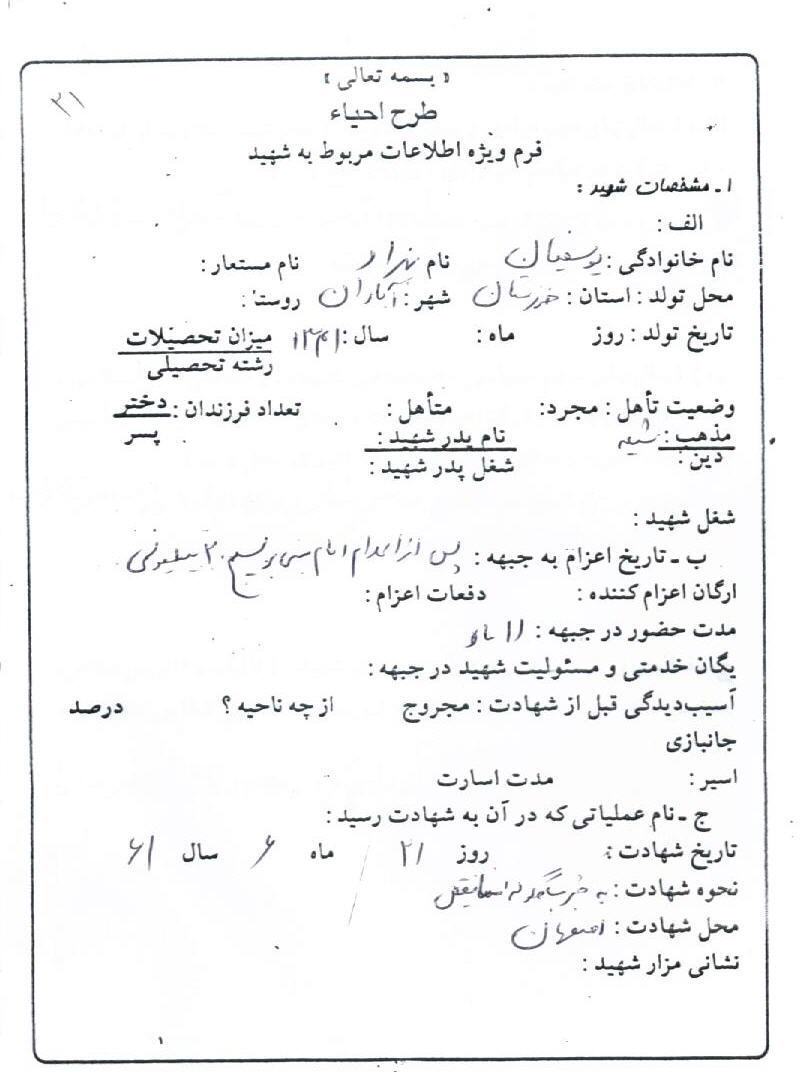 « بسمه تعالی »
۳۱
طرح احیاء
فرم ویژه اطلاعات مربوط به شهید
۱ـ مشخصات شهید :
الف :
نام خانوادگی : یوسفیان نام بهزاد نام مستعار :
محل تولد : استان : خوزستان شهر : آبادان روستا :
تاریخ تولد : روز ماه : سال : ۱۳۴۱ میزان تحصیلات
رشته تحصیلی
وضعیت تأهل : مجرد: متأهل : تعداد فرزندان : دختر
پسر
مذهب : شیعه نام پدر شهید :
دین : شغل پدر شهید :
شغل شهید :
ب ـ تاریخ اعزام به جبهه : پس از امام ۲۰ میلیونی
ارگان اعزام کننده : دفعات اعزام :
مدت حضور در جبهه : ۱۱ ماه
یگان خدمتی و مسئولیت شهید در جبهه :
آسیب‌دیدگی قبل از شهادت : مجروج از چه ناحیه ؟ درصد
جانبازی
اسیر : مدت اسارت
ج ـ نام عملیاتی که در آن به شهادت رسید :
تاریخ شهادت : روز ۲۱ ماه ۶ سال ۶۱
نحوه شهادت : به
محل شهادت : اصفهان
نشانی مزار شهید :
۱